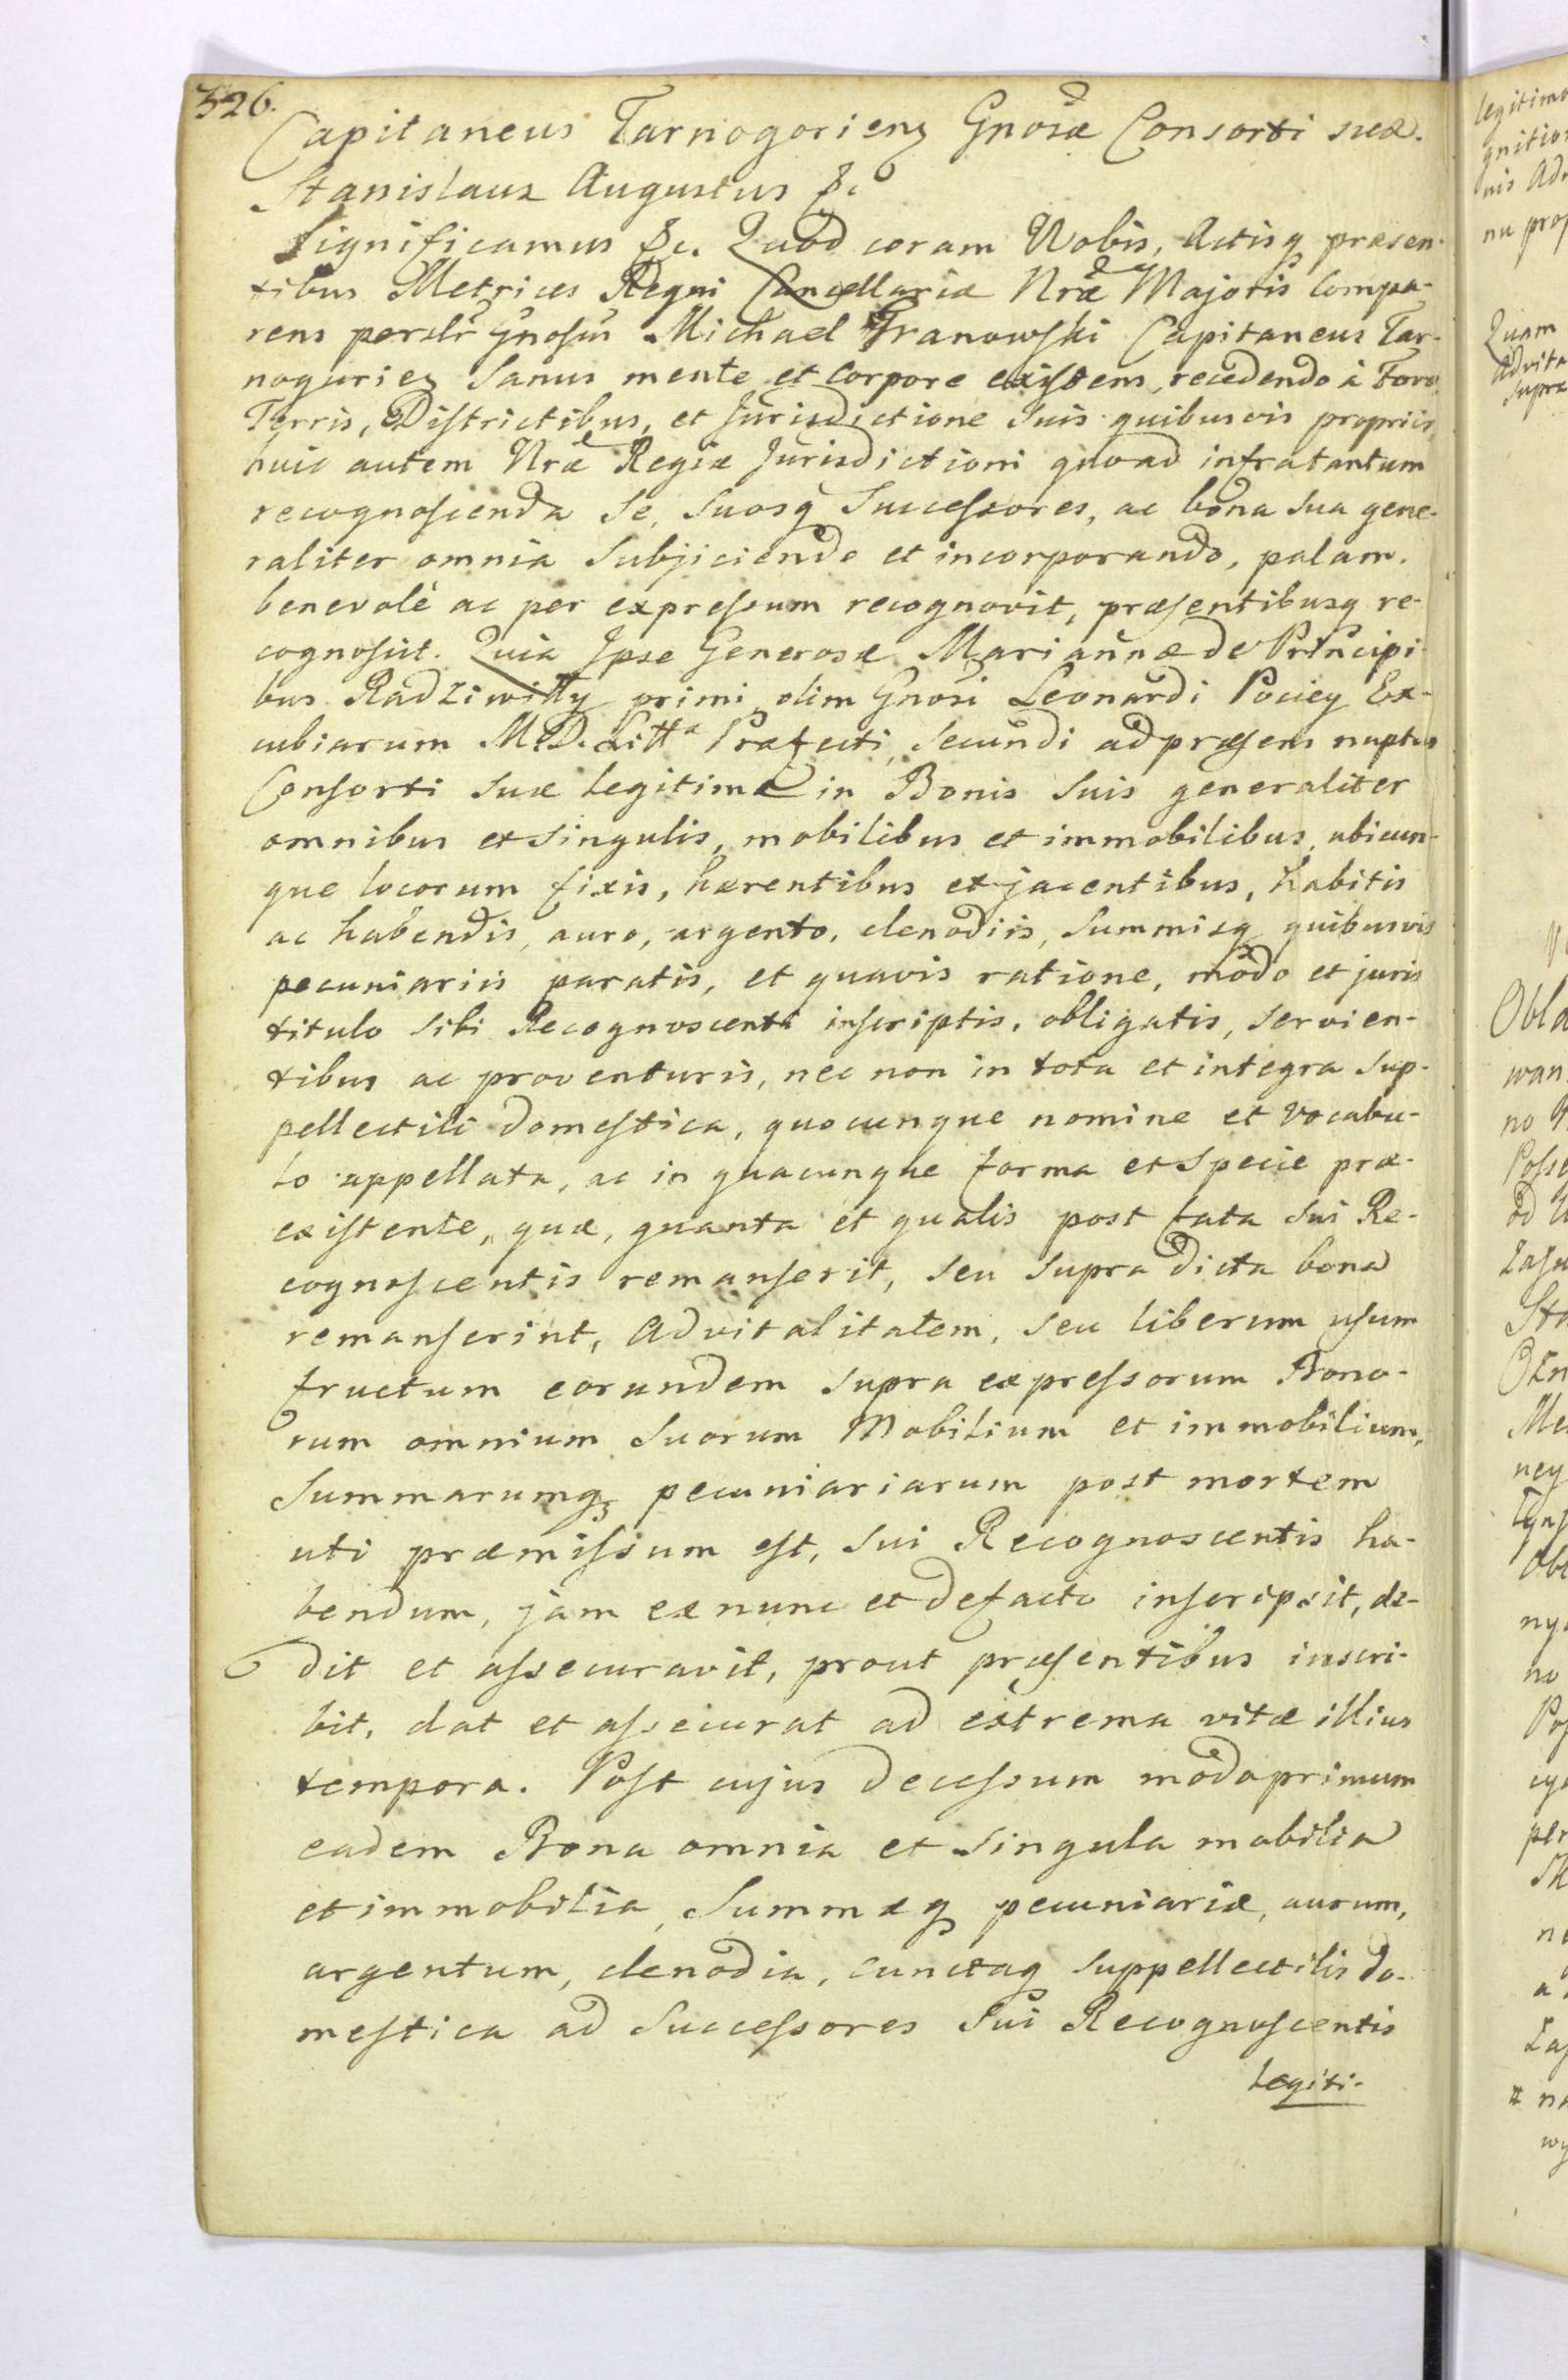 326.
Capitaneus Tarnogoriens Gnosæ Consorti suæ.
Stanislaus Augustus &c
Significamus &c. Quod coram Nobis, Actisq præsen-
tibus Metrices Regni Cancellariæ Nræ Majoris Compa-
rens persłr Gnosus Michael Granowski Capitaneus Tar-
noguriez Sanus mente et Corpore existens, recedendo à Foro,
Terris, Districtibus, et Jurisdictione Suis quibusvis propriis,
huic autem Nræ Regiæ Jurisdictioni quoad infratantum
recognoscenda Se, Suosq Successores, ac bona Sua gene-
raliter omnia Subjiciendo et incorporando, palam.
benevolè ac per expressum recognovit, præsentibusq re-
cognoscit. Quia Ipse Generosæ Mariannæ de Principi-
bus Radziwiłły primi olim Gnosi Leonardi Pociey Ex-
cubiarum M. D. Litta Præfecti, Secundi ad præsens nuptus
Consorti Suæ legitimæ in Bonis Suis generaliter
omnibus et Singulis, mobilibus et immobilibus, ubicun-
que locorum fixis, hærentibus et jacentibus, habitis
ac habendis, auro, argento, clenodiis, Summisq quibusvis
pecuniariis paratis, et quavis ratione, modo et juris
titulo Sibi Recognoscenti inscriptis, obligatis, Servien-
tibus ac proventuris, nec non in tota et integra Sup-
pellectili domestica, quocunque nomine et vocabu-
lo appellata, ac in quacunque forma et Specie præ-
existente, quæ, quanta et qualis post fata Sui Re-
cognoscentis remanserit, Seu Supra dicta bona
remanserint, Advitalitatem, Seu liberum usum
fructum eorundem Supra expressorum Bono-
rum omnium Suorum Mobilium et immobilium,
Summarumq pecuniariarum post mortem
uti præmissum est, Sui Recognoscentis ha-
bendum, jam ex nunc et de facto inscripsit, de-
dit et assecuravit, prout præsentibus inscri-
bit, dat et assecurat ad extrema vitæ illius
tempora. Post cujus decessum modo primum
eadem Bona omnia et Singula mobilia
et immobilia, Summæq pecuniariæ, aurum,
argentum, clenodia, cunctaq Suppellectilis do-
mestica ad Successores Sui Recognoscentis
Legiti-